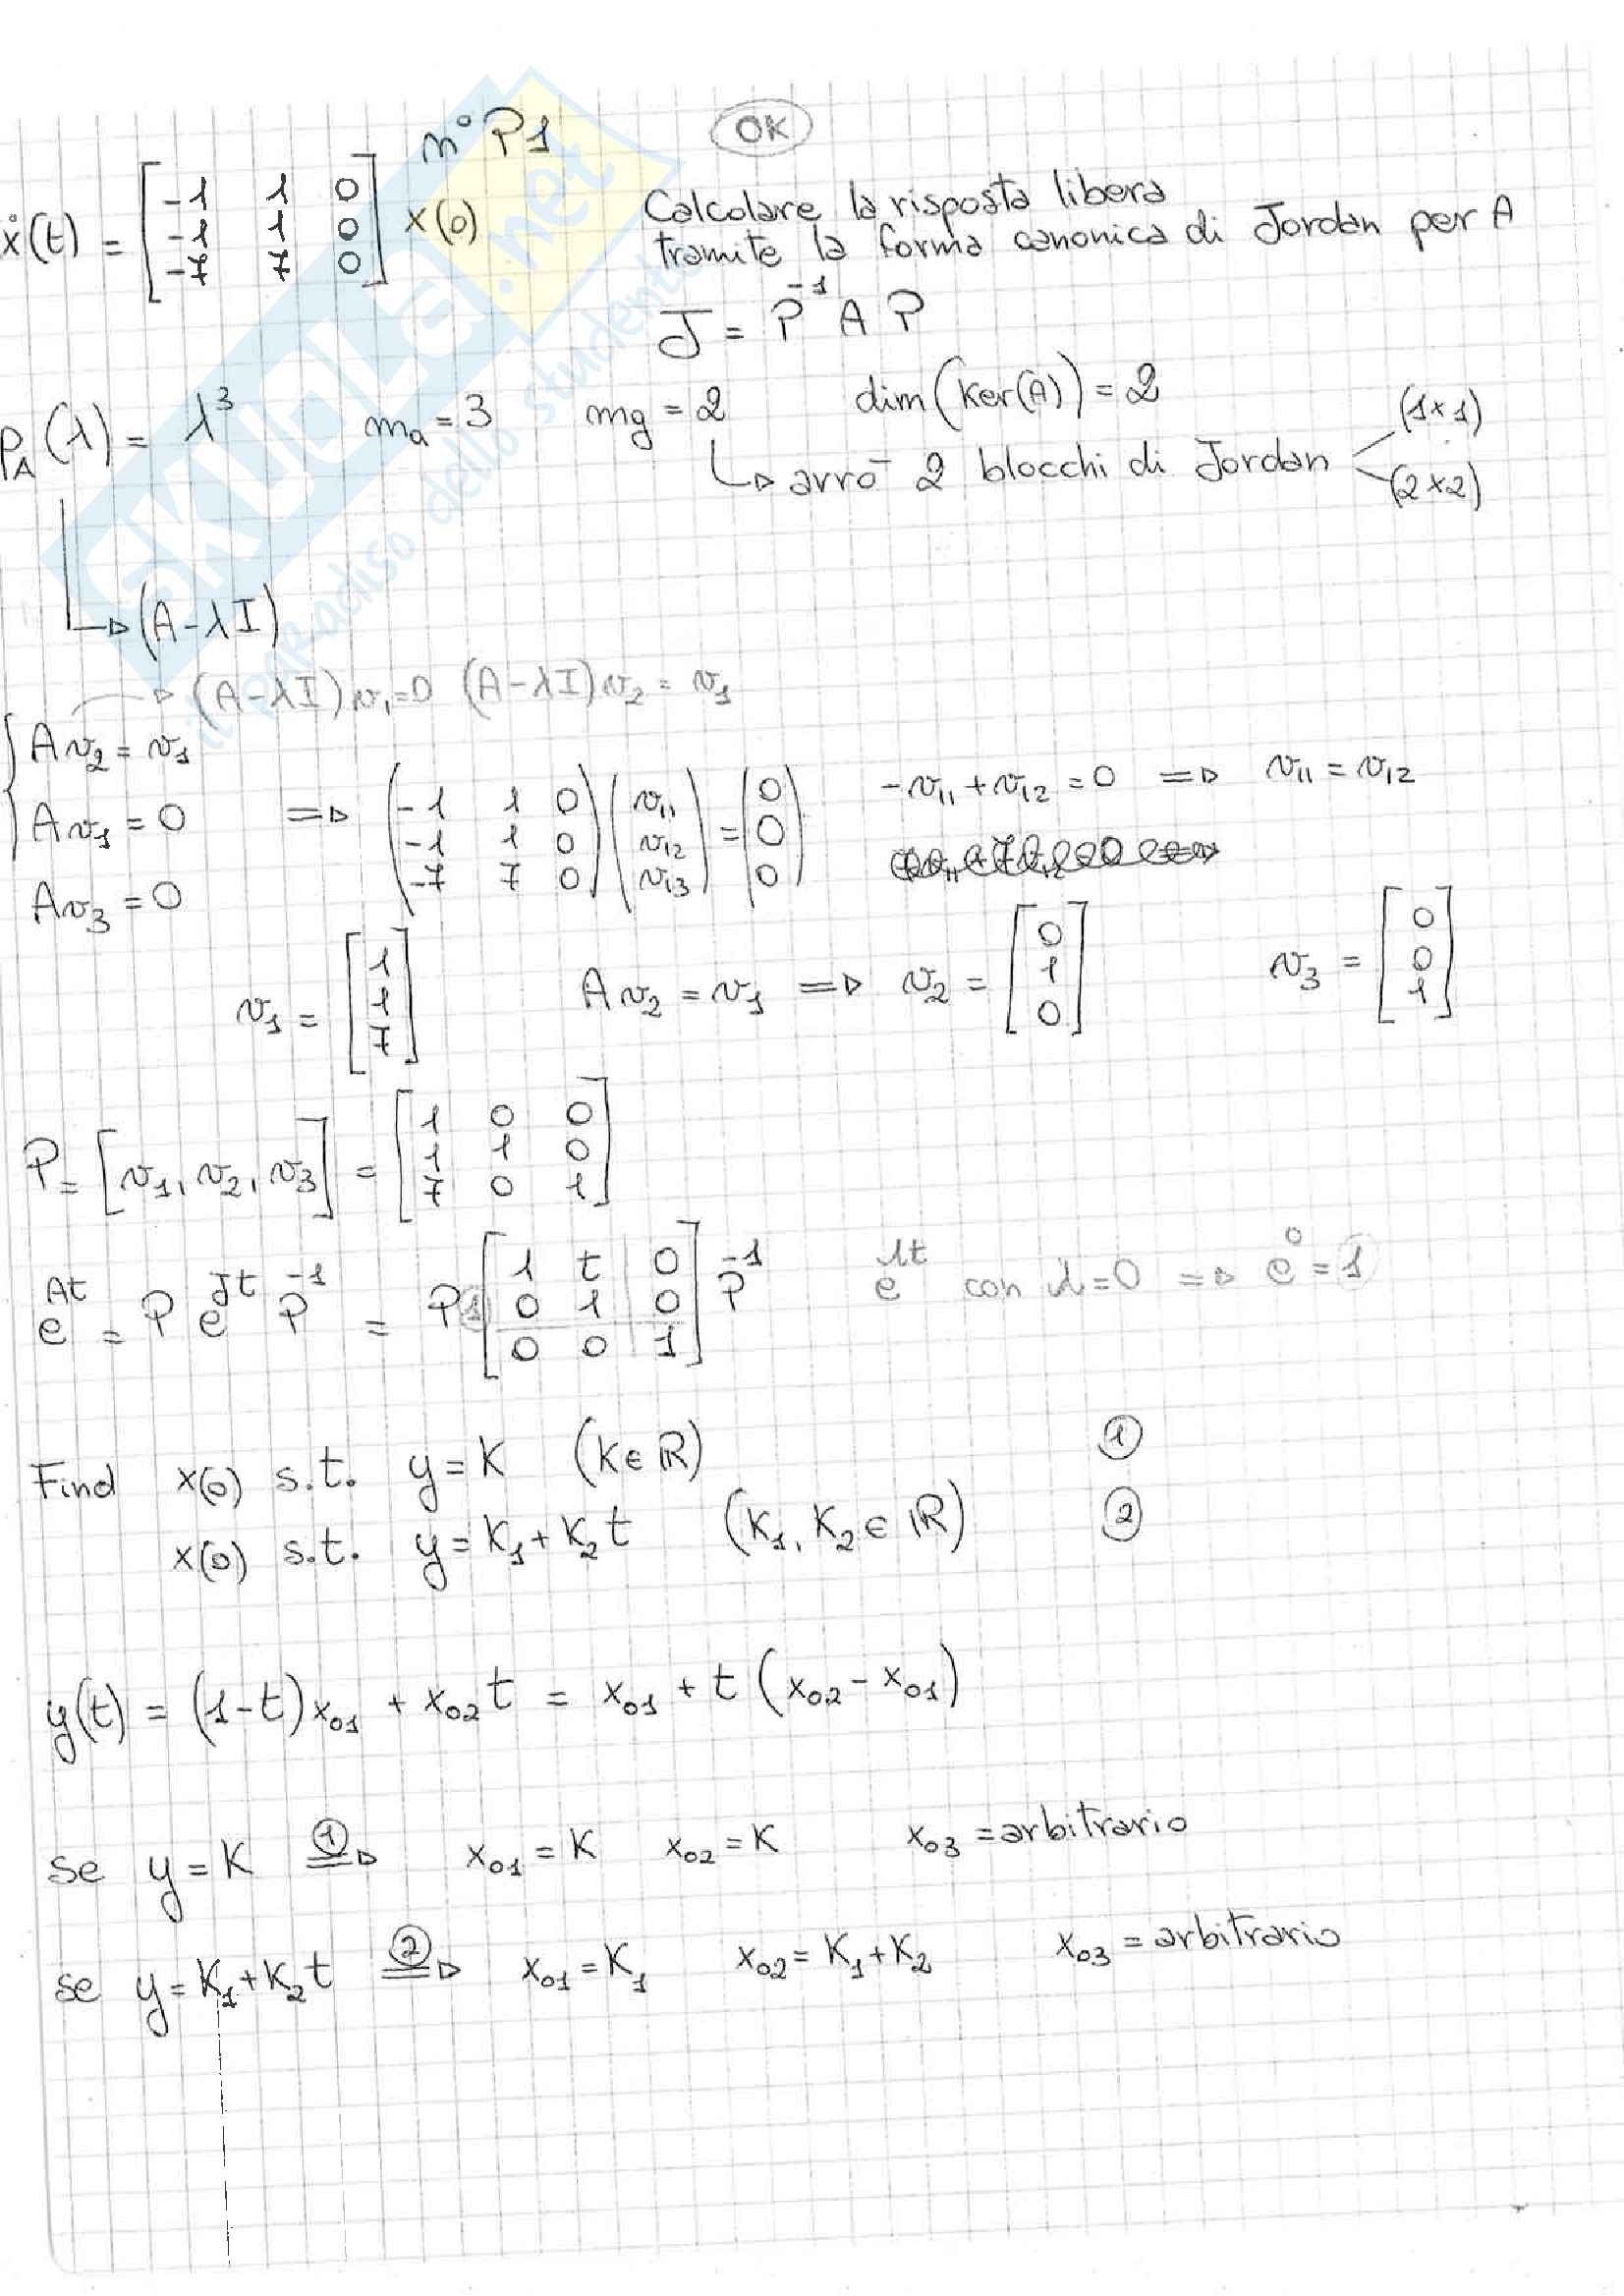 n° P1
OK
ẋ(t) = [-1 1 0; -1 1 0; -7 7 0] x(0)
Calcolare la risposta libera
tramite la forma canonica di Jordan per A
J = P⁻¹ A P
P_A(λ) = λ³   m_a = 3   m_g = 2   dim(Ker(A)) = 2
↳ avrò 2 blocchi di Jordan (1x1) (2x2)
↳ (A-λI)
→ (A-λI)v₁=0 (A-λI)v₂ = v₁
{ Av₂ = v₁
Av₁ = 0 ⇒ (-1 1 0; -1 1 0; -7 7 0)(v₁₁; v₁₂; v₁₃) = (0; 0; 0)   -v₁₁+v₁₂ = 0 ⇒ v₁₁ = v₁₂
Av₃ = 0
v₁ = [1; 1; 7]   Av₂ = v₁ ⇒ v₂ = [0; 1; 0]   v₃ = [0; 0; 1]
P = [v₁, v₂, v₃] = [1 0 0; 1 1 0; 7 0 1]
e^At = P e^Jt P⁻¹ = P 1 [1 t 0; 0 1 0; 0 0 1] P⁻¹   e^λt con λ=0 ⇒ e⁰ = 1
Find x(0) s.t. y = K (K ∈ ℝ) ①
x(0) s.t. y = K₁ + K₂t (K₁, K₂ ∈ ℝ) ②
y(t) = (1-t)x₀₁ + x₀₂t = x₀₁ + t(x₀₂ - x₀₁)
se y = K ①⇒ x₀₁ = K   x₀₂ = K   x₀₃ = arbitrario
se y = K₁+K₂t ②⇒ x₀₁ = K₁   x₀₂ = K₁+K₂   x₀₃ = arbitrario
SKUOLa.net
il paradiso dello studente